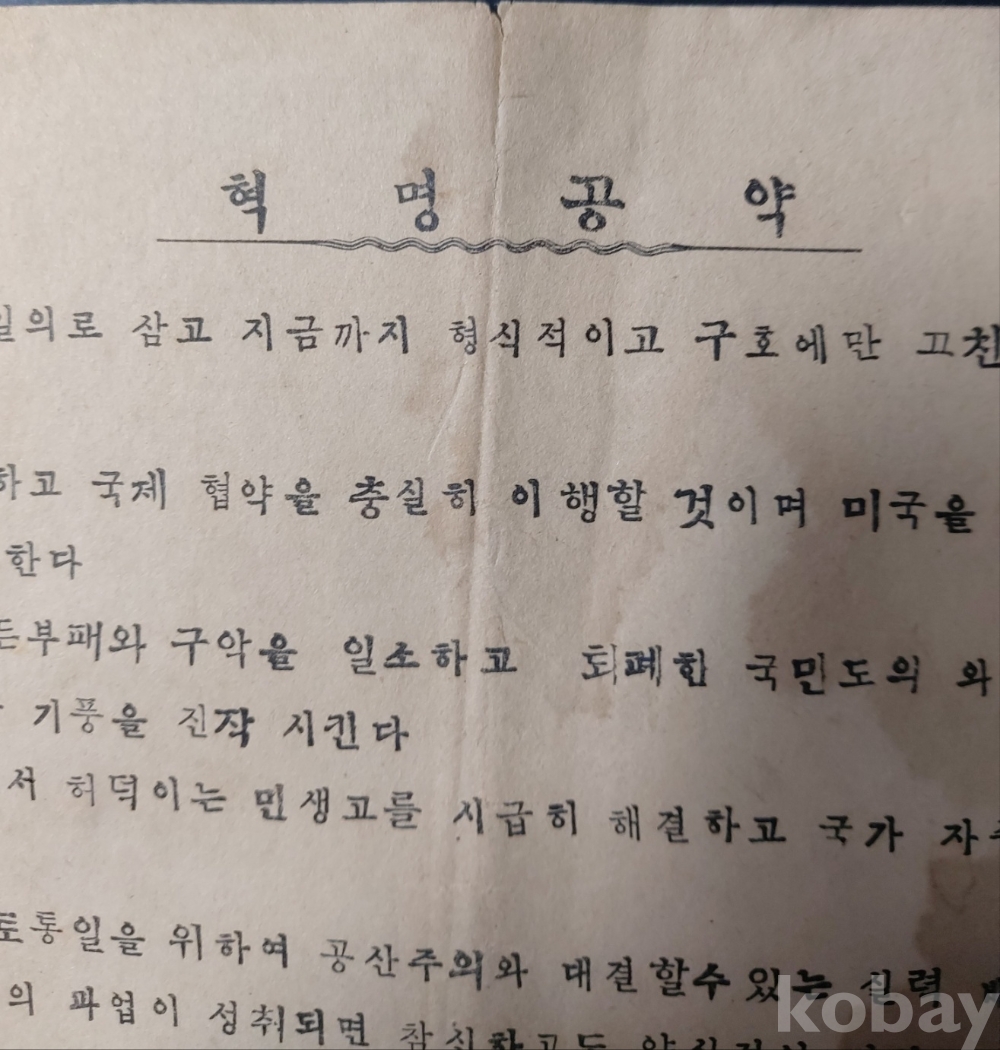 혁 명 공 약
일의로 삼고 지금까지 형식적이고 구호에만 끄친
하고 국제 협약을 충실히 이행할 것이며 미국을
한다
든부패와 구악을 일소하고 퇴폐한 국민도의 와
기풍을 진작 시킨다
서 허덕이는 민생고를 시급히 해결하고 국가 자
토통일을 위하여 공산주의와 대결할수 있는 실력
의 과업이 성취되면 참신하고도
kobay